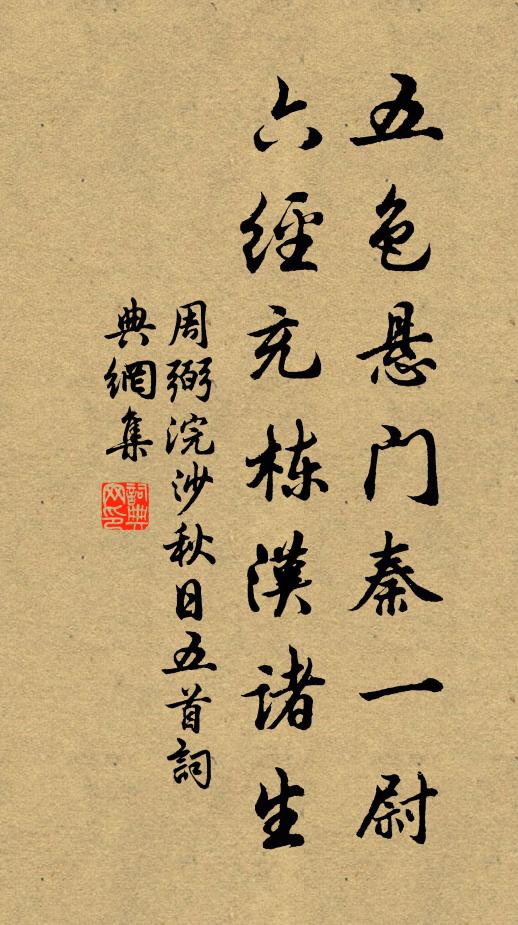 五色悬门秦一尉
六經充栋漢諸生
周弼浣沙秋日五首詞
典網集
詞典
网印